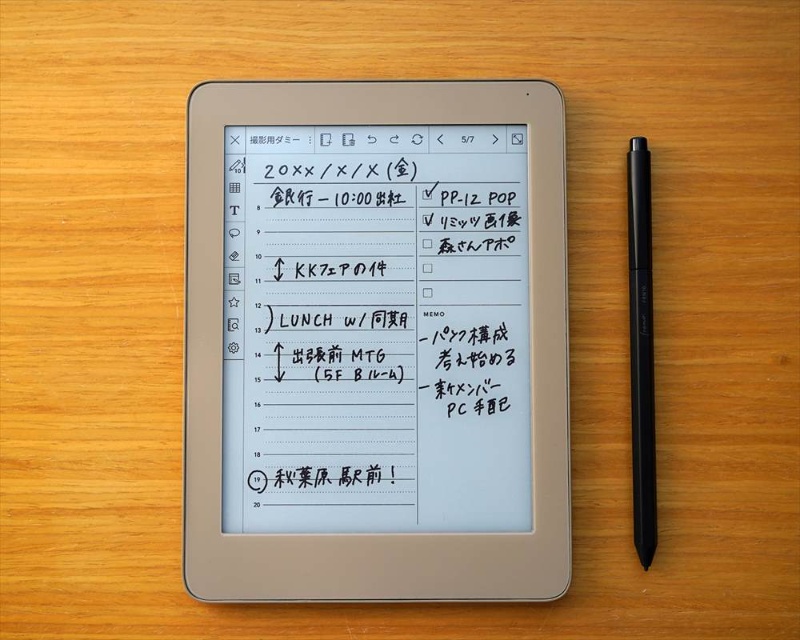 撮影用ダミー
5/7
20xx/x/x(金)
銀行－10:00出社
8
9
10
KKフェアの件
11
12
LUNCH w/ 同期
13
14
出張前 MTG
(5F Bルーム)
15
16
17
18
19 秋葉原駅前！
20
PP-12 POP
リミッツ画像
森さんアポ
MEMO
－パンフ構成
考え始める
－新メンバー
PC手配
T